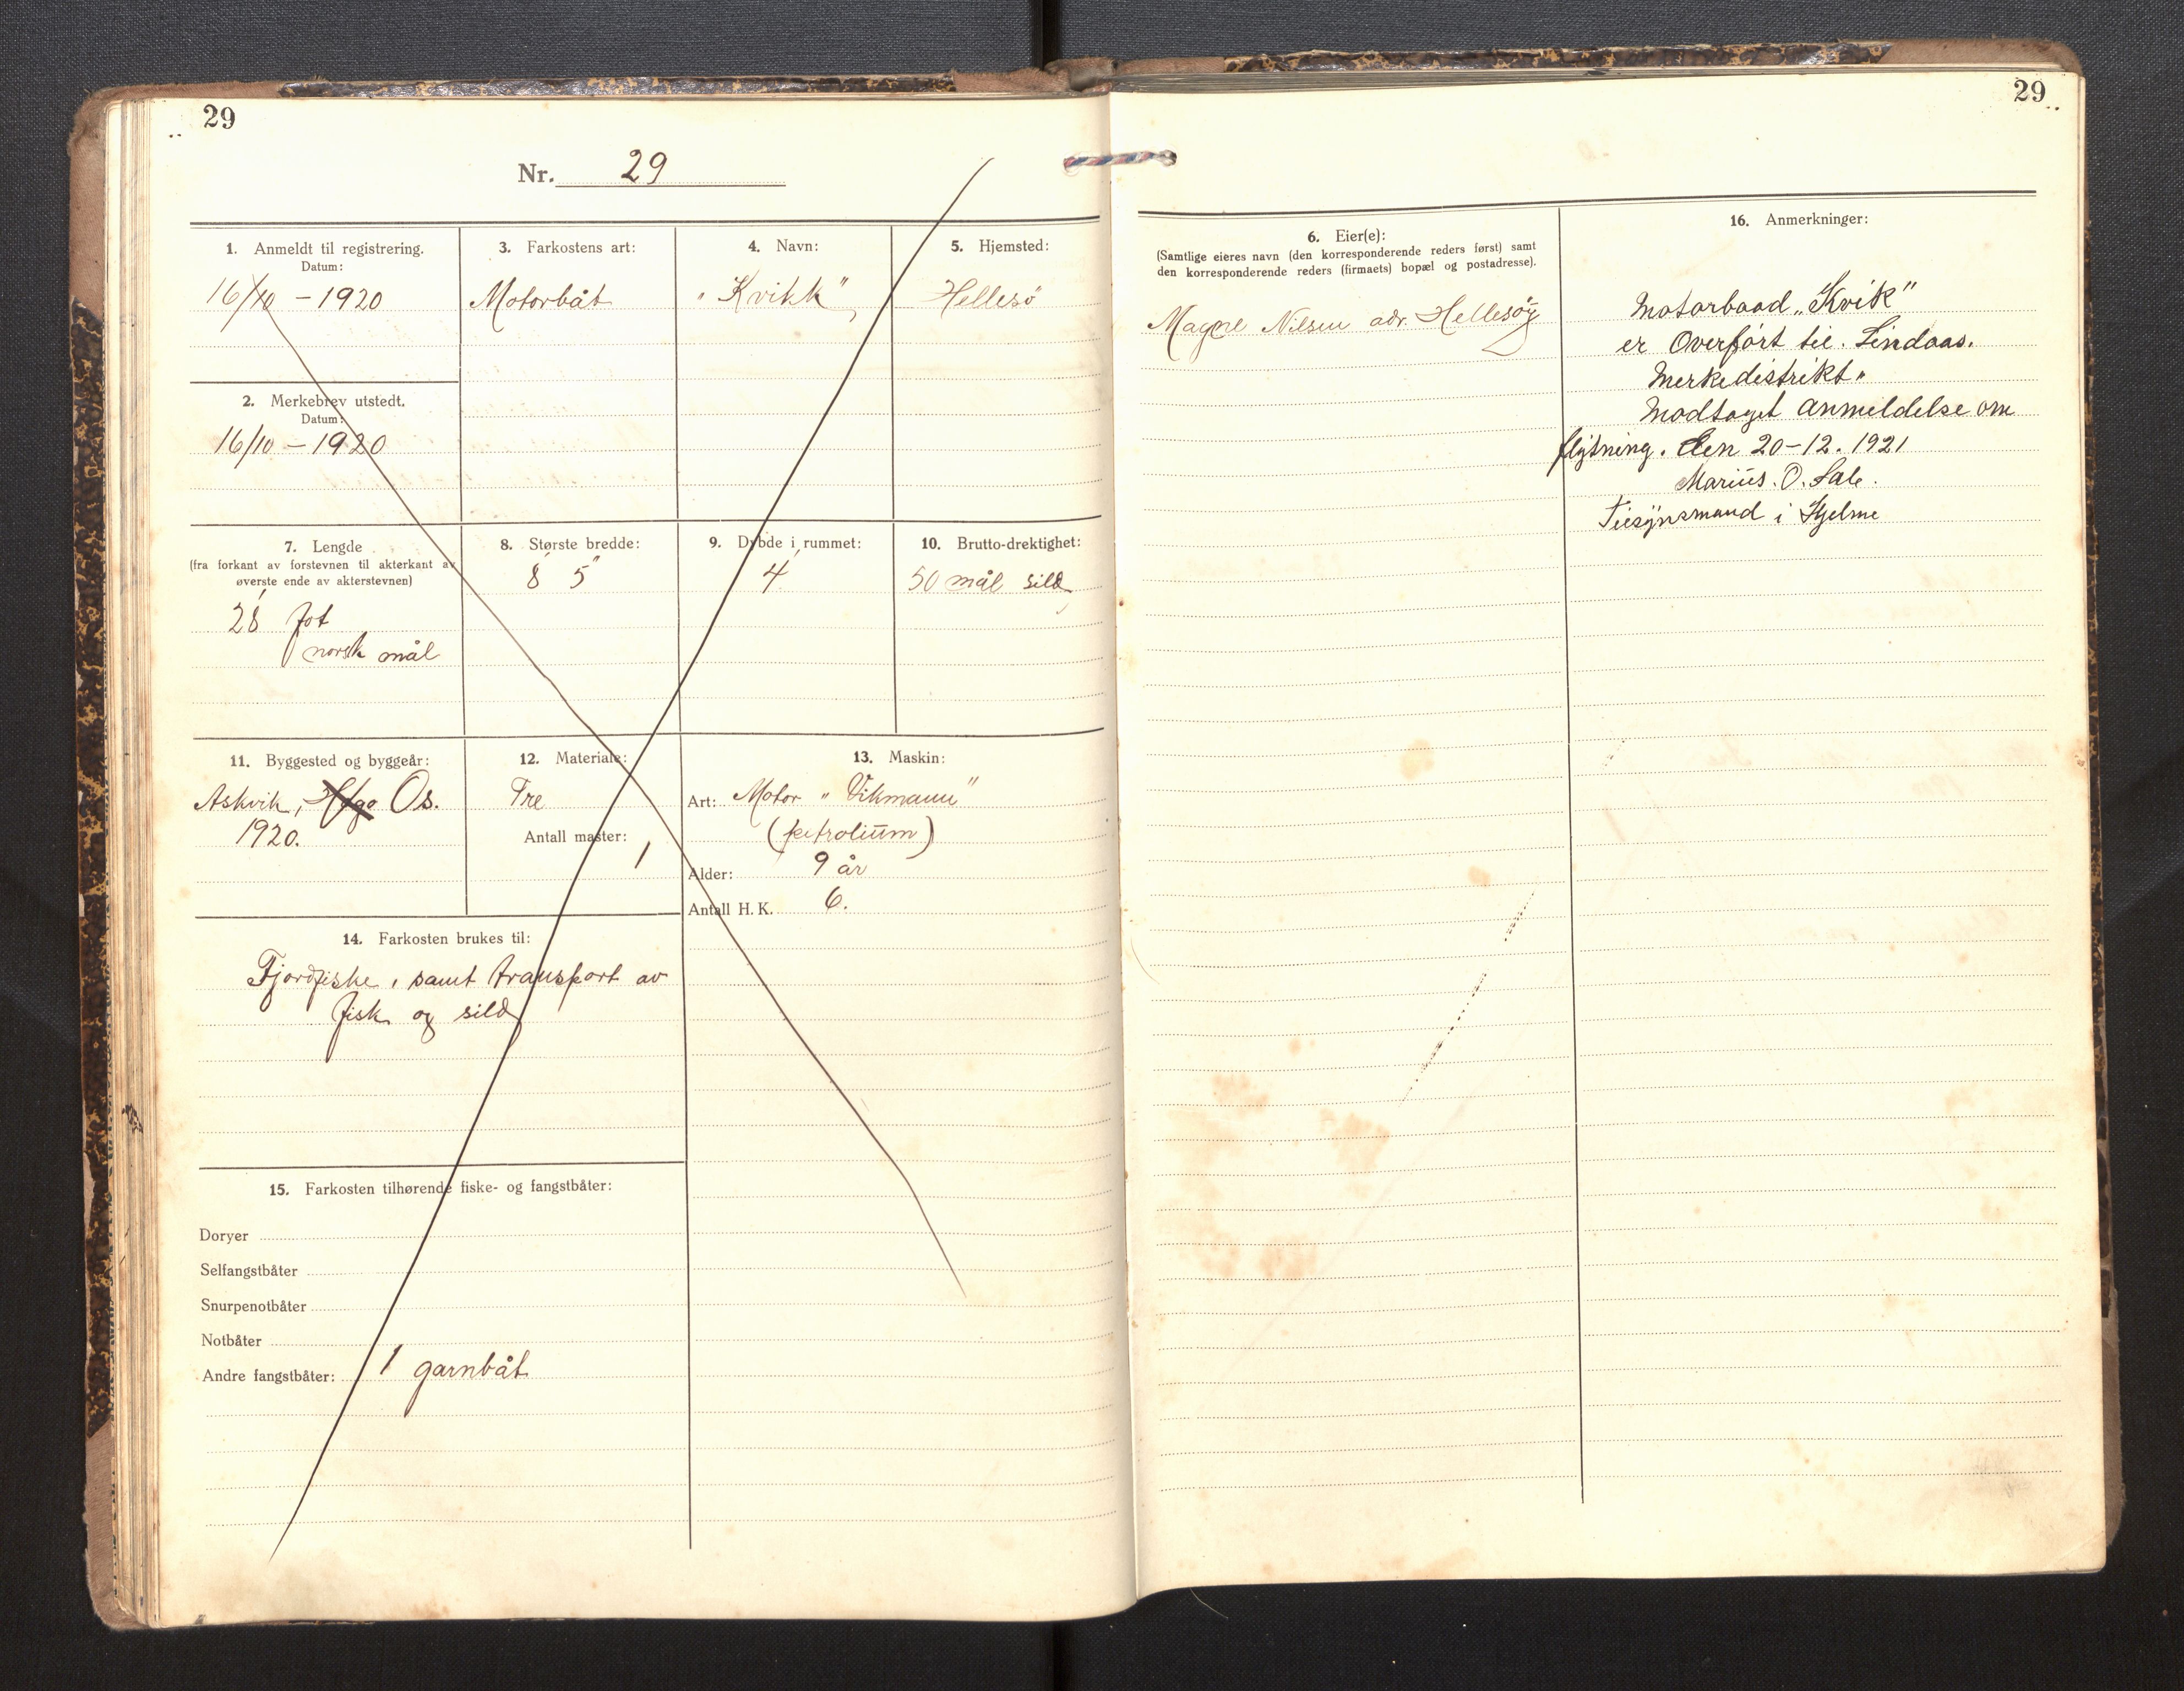 29
Nr. 29
1. Anmeldt til registrering.
Datum:
16/10 - 1920
3. Farkostens art:
Motorbåt
4. Navn:
"Kvikk"
5. Hjemsted:
Hellesö
2. Merkebrev utstedt.
Datum:
16/10 - 1920
7. Lengde
(fra forkant av forstevnen til akterkant av
øverste ende av akterstevnen)
28' fot
norsk mål
8. Største bredde:
8' 5"
9. Dybde i rummet:
4'
10. Brutto-drektighet:
50 mål sild
11. Byggested og byggeår:
Askvik, Os.
1920.
12. Materiale:
Tre
Antall master:
1
13. Maskin:
Art: Motor "Vikmann"
(petrolium)
Alder: 9 år
Antall H. K. 6.
14. Farkosten brukes til:
Fjordfiske, samt transport av
fisk og sild
15. Farkosten tilhørende fiske- og fangstbåter:
Doryer
Selfangstbåter
Snurpenotbåter
Notbåter
Andre fangstbåter: 1 garnbåt
29
6. Eier(e):
(Samtlige eieres navn (den korresponderende reders først) samt
den korresponderende reders (firmaets) bopæl og postadresse).
Magne Nilsen adr. Hellesöy
16. Anmerkninger:
Motorbaad „Kvik"
er Overført til. Lindaas.
Merkedistrikt"
Modtaget anmeldelse om
flytning. den 20-12. 1921
Marius. O. Sale.
Tilsynsmand i Hjelme